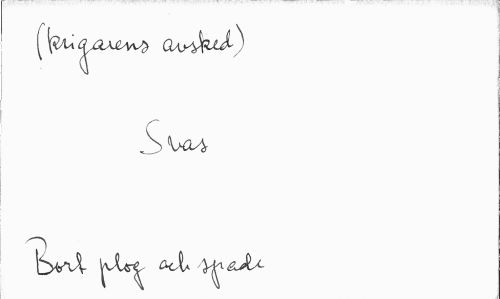 (Krigarens avsked)
Svas
Bort plog och spade